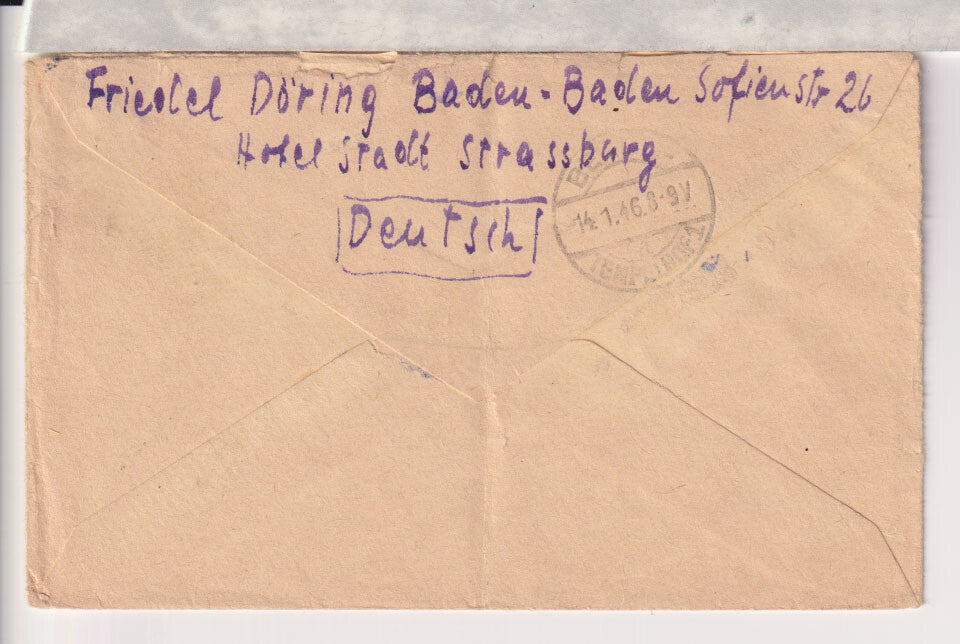 Friedel Döring Baden-Baden Sofienstr 26
Hotel Stadt Strassburg
Deutsch
14.1.46.8-9V